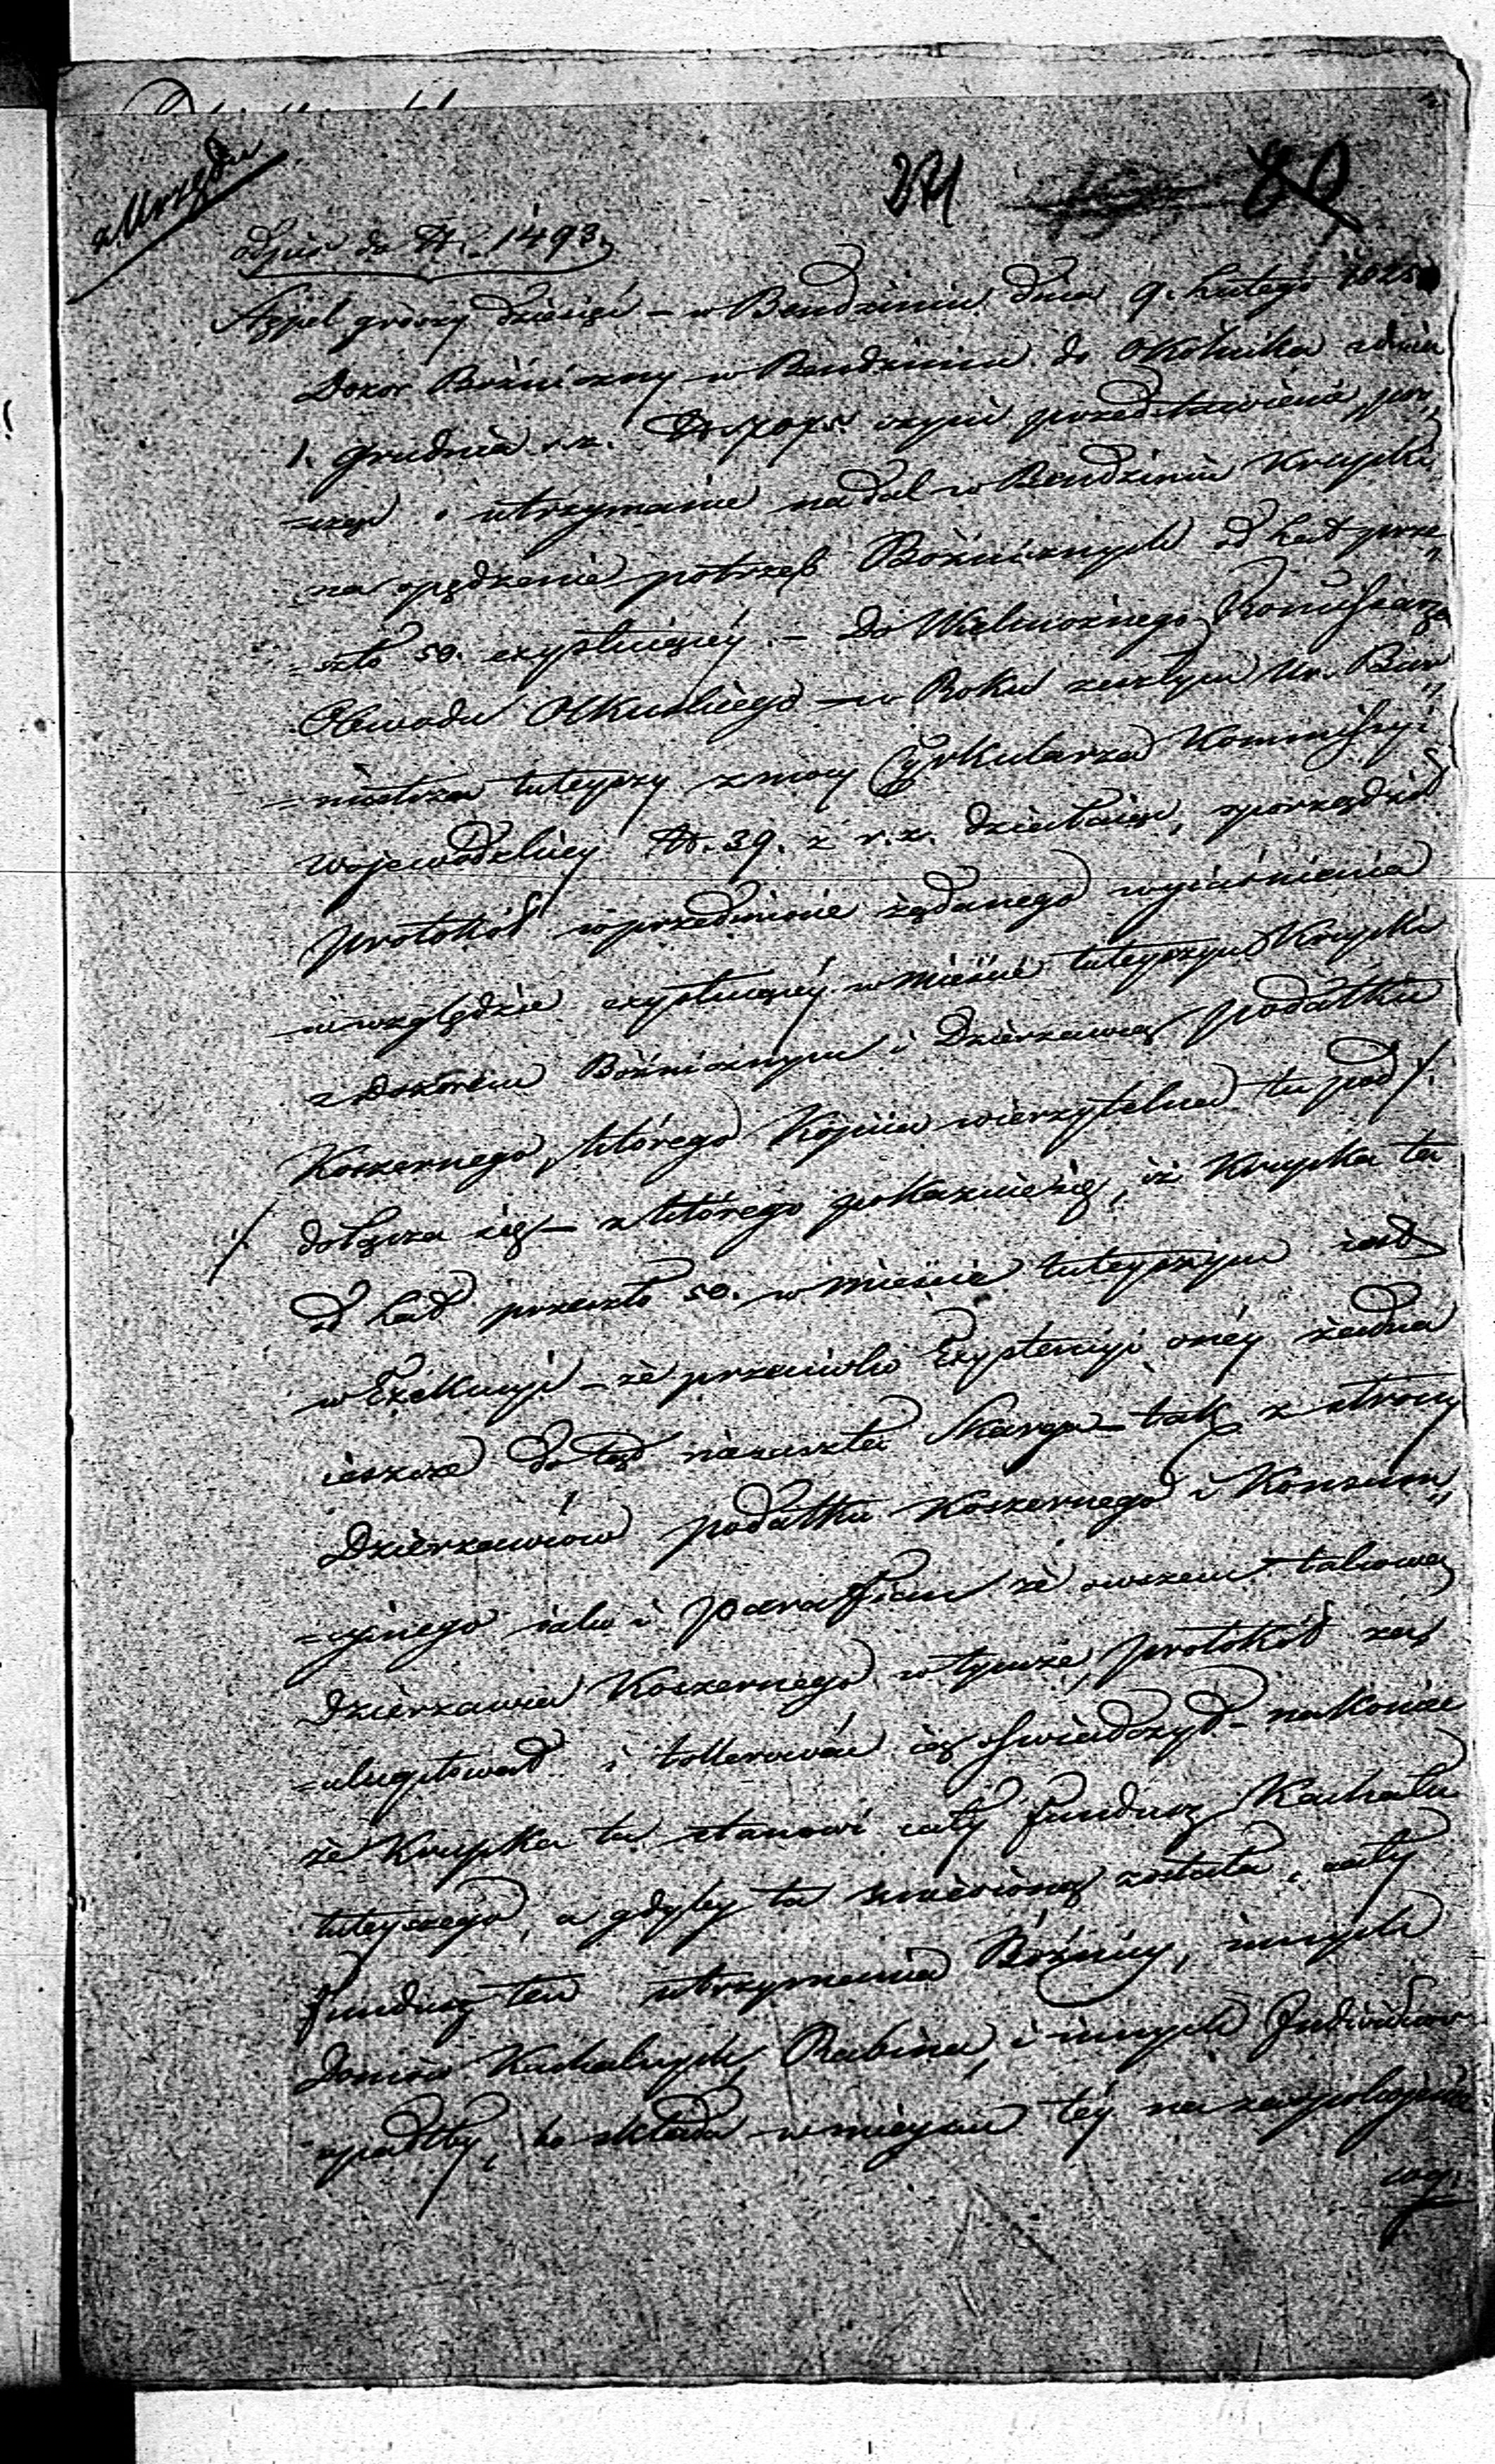 z Urzędu
271
Odpis do N. 1493.
Stępel groszy dziesięć – w Bendzinie dnia 9. Lutego 1825
Dozor Bożniczny w Bendzinie do Okolnika z dnia
1. Grudnia r. z. czyni przedstawienie pro„
=sząc o utrzymanie nadal w Bendzinie Krupki
na opędzenie potrzeb Bożnicznych od Lat prze„
=szło 50. exystuiącéy. – Do Wielmożnego Kommissarza
Obwodu Olkuskiego – w Roku zeszłym Ur. Bur„
=mistrz tuteyszy z mocy Cyrkularza Kommissyi
Wojewodzkiey N. 39. z r. z. działaiąc, sporządził
protokół w przedmiocie żądanego wyiaśnienia
względzie exystuiącéy w mieście tuteyszym Krupki
z Dozorem Bożnicznym i Dzierzawcą podatku
Koszernego, którego Kopiia wierzytelna tu pod /.
/. dołącza się – z którego pokazuie się, iż Krupka ta
od Lat przeszło 50. w mieście tuteyszym iest
w Exekucyi – że przeciwko Exystencyi onéy żadna
ieszcze dotąd niezaszła Skarga – tak z strony
Dzierzawców podatku Koszernego i Konsum„
=cyinego iako i Parafian że owszem takową
Dzierzawca Koszernego w tymże protokół za„
i tollerować ią oświadczył – nakoniec
że Krupka ta stanowi cały fundusz Kachału
tuteyszego, a gdyby ta zniesioną została, cały
fundusz ten utrzymania Bożnicy, innych
Domów Kachalnych, Rabina, i innych Indiwiduów
upadłby, bo składa w mieysce téy na zaspokojenie
wy„